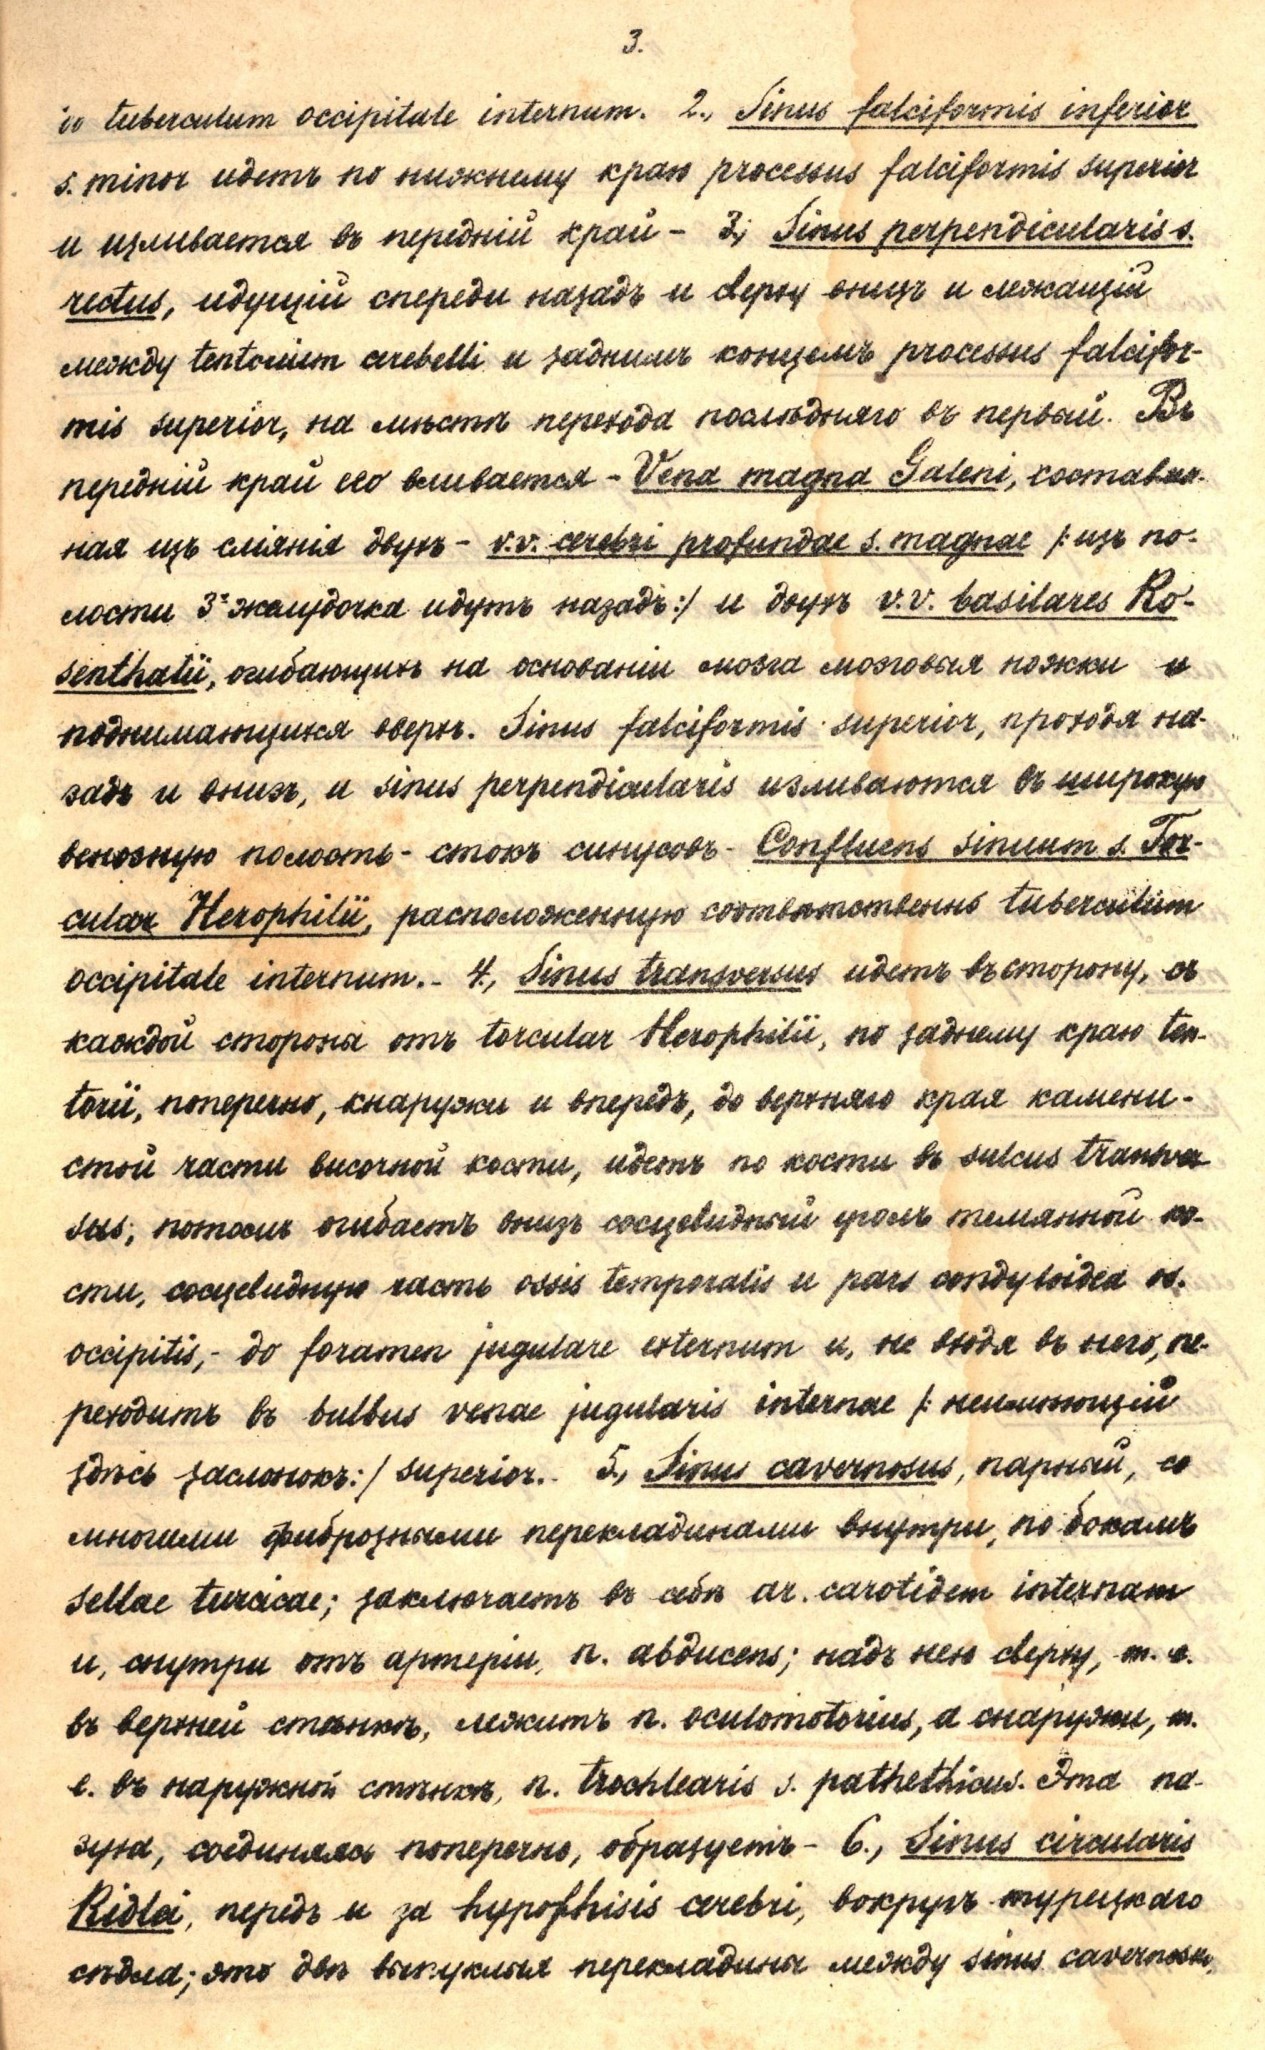 3.
до tuberculum occipitale internum. 2., Sinus falciformis inferior
s. minor идетъ по нижнему краю processus falciformis superior
и изливается въ передній край - 3., Sinus perpendicularis s.
rectus, идущій спереди назадъ и сверху внизъ и лежащій
между tentorium cerebelli и заднимъ концемъ processus falcifor-
mis superior, на мѣстѣ перехода послѣдняго въ первый. Въ
передній край его вливается - Vena magna Galeni, составлен-
ная изъ сліянія двухъ - v.v. cerebri profundae s. magnae /: изъ по-
лости 3го желудочка идутъ назадъ :/ и двухъ v.v. basilares Ro-
senthalii, огибающихъ на основаніи мозга мозговыя ножки и
поднимающихся вверхъ. Sinus falciformis superior, проходя на-
задъ и внизъ, и sinus perpendicularis изливаются въ широкую
венозную полость - стокъ синусовъ - Confluens sinuum s. Tor-
cular Herophilii, расположенную соотвѣтственно tuberculum
occipitale internum. - 4., Sinus transversus идетъ въ сторону, съ
каждой стороны отъ torcular Herophilii, по заднему краю ten-
torii, поперечно, кнаружи и впередъ, до верхняго края камени-
стой части височной кости, идетъ по кости въ sulcus transver
sus; потомъ огибаетъ внизъ сосцевидный уголъ темянной ко-
сти, сосцевидную часть ossis temporalis и pars condyloidea os.
occipitis, - до foramen jugulare externum и, не входя въ него, пе-
реходитъ въ bulbus venae jugularis internae /: неимѣющій
здѣсь заслонокъ :/ superior. 5., Sinus cavernosus, парный, со
многими фиброзными перекладинами внутри, по бокамъ
sellae turcicae; заключаетъ въ себѣ ar. carotidem internam
и, снутри отъ артеріи, n. abducens; надъ нею сверху, т. е.
въ верхней стѣнкѣ, лежитъ n. oculomotorius, а снаружи, т.
е. въ наружной стѣнкѣ, n. trochlearis s. pathethicus. Эта па-
зуха, соединяясь поперечно, образуетъ - 6., Sinus circularis
Ridlei, передъ и за hypophisis cerebri, вокругъ турецкаго
сѣдла; это двѣ выпуклыя перекладины между sinus cavernosus,